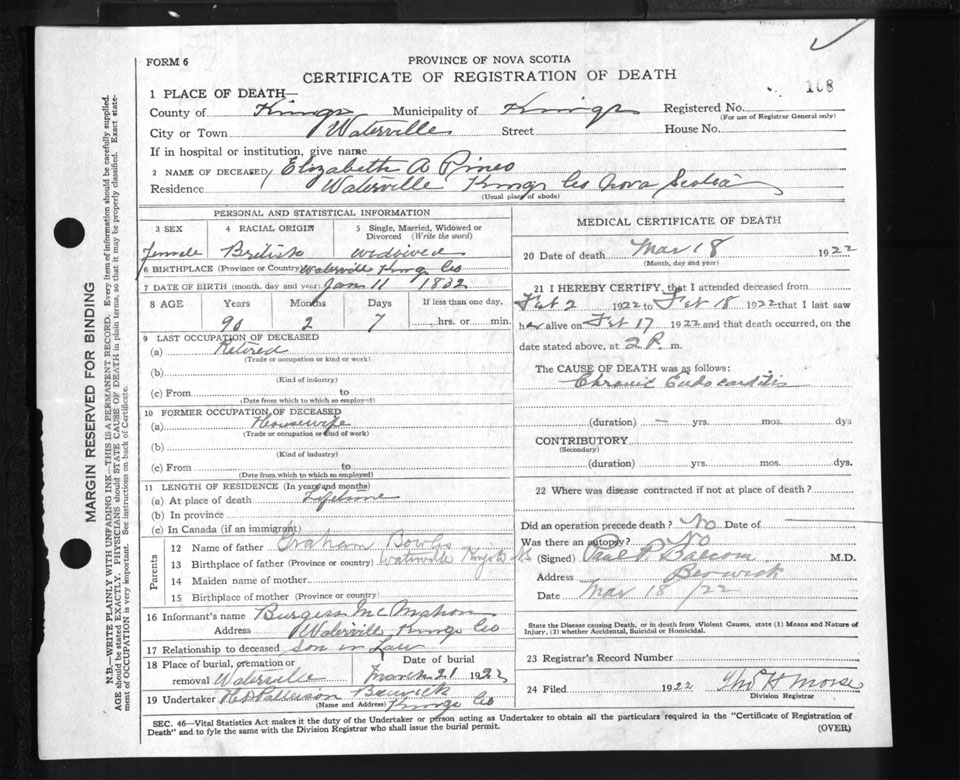 FORM 6
PROVINCE OF NOVA SCOTIA
CERTIFICATE OF REGISTRATION OF DEATH
168
1 PLACE OF DEATH—
County of Kings Municipality of Kings Registered No.
(For use of Registrar General only)
City or Town Waterville Street House No.
If in hospital or institution, give name
2 NAME OF DECEASED Elizabeth A Pineo
Residence Waterville Kings Co Nova Scotia
(Usual place of abode)
PERSONAL AND STATISTICAL INFORMATION
3 SEX 4 RACIAL ORIGIN 5 Single, Married, Widowed or Divorced (Write the word)
Female British widowed
6 BIRTHPLACE (Province or Country) Waterville Kings Co
7 DATE OF BIRTH (month, day and year) Jan 11 1832
8 AGE Years Months Days If less than one day,
90 2 7 hrs. or min.
9 LAST OCCUPATION OF DECEASED
(a) Retired
(Trade or occupation or kind or work)
(b)
(Kind of industry)
(c) From to
(Date from which to which so employed)
10 FORMER OCCUPATION OF DECEASED
(a) Housewife
(Trade or occupation or kind of work)
(b)
(Kind of industry)
(c) From to
(Date from which to which so employed)
11 LENGTH OF RESIDENCE (In years and months)
(a) At place of death Lifetime
(b) In province
(c) In Canada (if an immigrant)
Parents
12 Name of father Graham Bowles
13 Birthplace of father (Province or country) Waterville Kings Co NS
14 Maiden name of mother
15 Birthplace of mother (Province or country)
16 Informant's name Burgess McMahon
Address Waterville Kings Co
17 Relationship to deceased Son in Law
18 Place of burial, cremation or removal Waterville Date of burial March 21 1922
19 Undertaker Patterson Berwick
(Name and Address) Kings Co
MEDICAL CERTIFICATE OF DEATH
20 Date of death Mar 18 1922
(Month, day and year)
21 I HEREBY CERTIFY, that I attended deceased from
Feb 2 1922 to Feb 18 1922 that I last saw
her alive on Feb 17 1922 and that death occurred, on
date stated above, at 2 P. m.
The CAUSE OF DEATH was as follows:
Chronic Endocarditis
(duration) — yrs. mos. dys
CONTRIBUTORY
(Secondary)
(duration) yrs. mos. dys.
22 Where was disease contracted if not at place of death?
Did an operation precede death? No Date of
Was there an autopsy? No
(Signed) Paul P. Balcom M.D.
Address Berwick
Date Mar 18 /22
State the Disease causing Death, or in death from Violent Causes, state (1) Means and Nature of
Injury, (2) whether Accidental, Suicidal or Homicidal.
23 Registrar's Record Number
24 Filed 1922 Thos H Morse
Division Registrar
SEC. 46—Vital Statistics Act makes it the duty of the Undertaker or person acting as Undertaker to obtain all the particulars required in the "Certificate of Registration of
Death" and to fyle the same with the Division Registrar who shall issue the burial permit. (OVER)
MARGIN RESERVED FOR BINDING
N.B.—WRITE PLAINLY WITH UNFADING INK—THIS IS A PERMANENT RECORD. Every item of information should be carefully supplied.
AGE should be stated EXACTLY. PHYSICIANS should STATE CAUSE OF DEATH in plain terms, so that it may be properly classified. Exact state-
ment of OCCUPATION is very important. See instructions on back of Certificate.